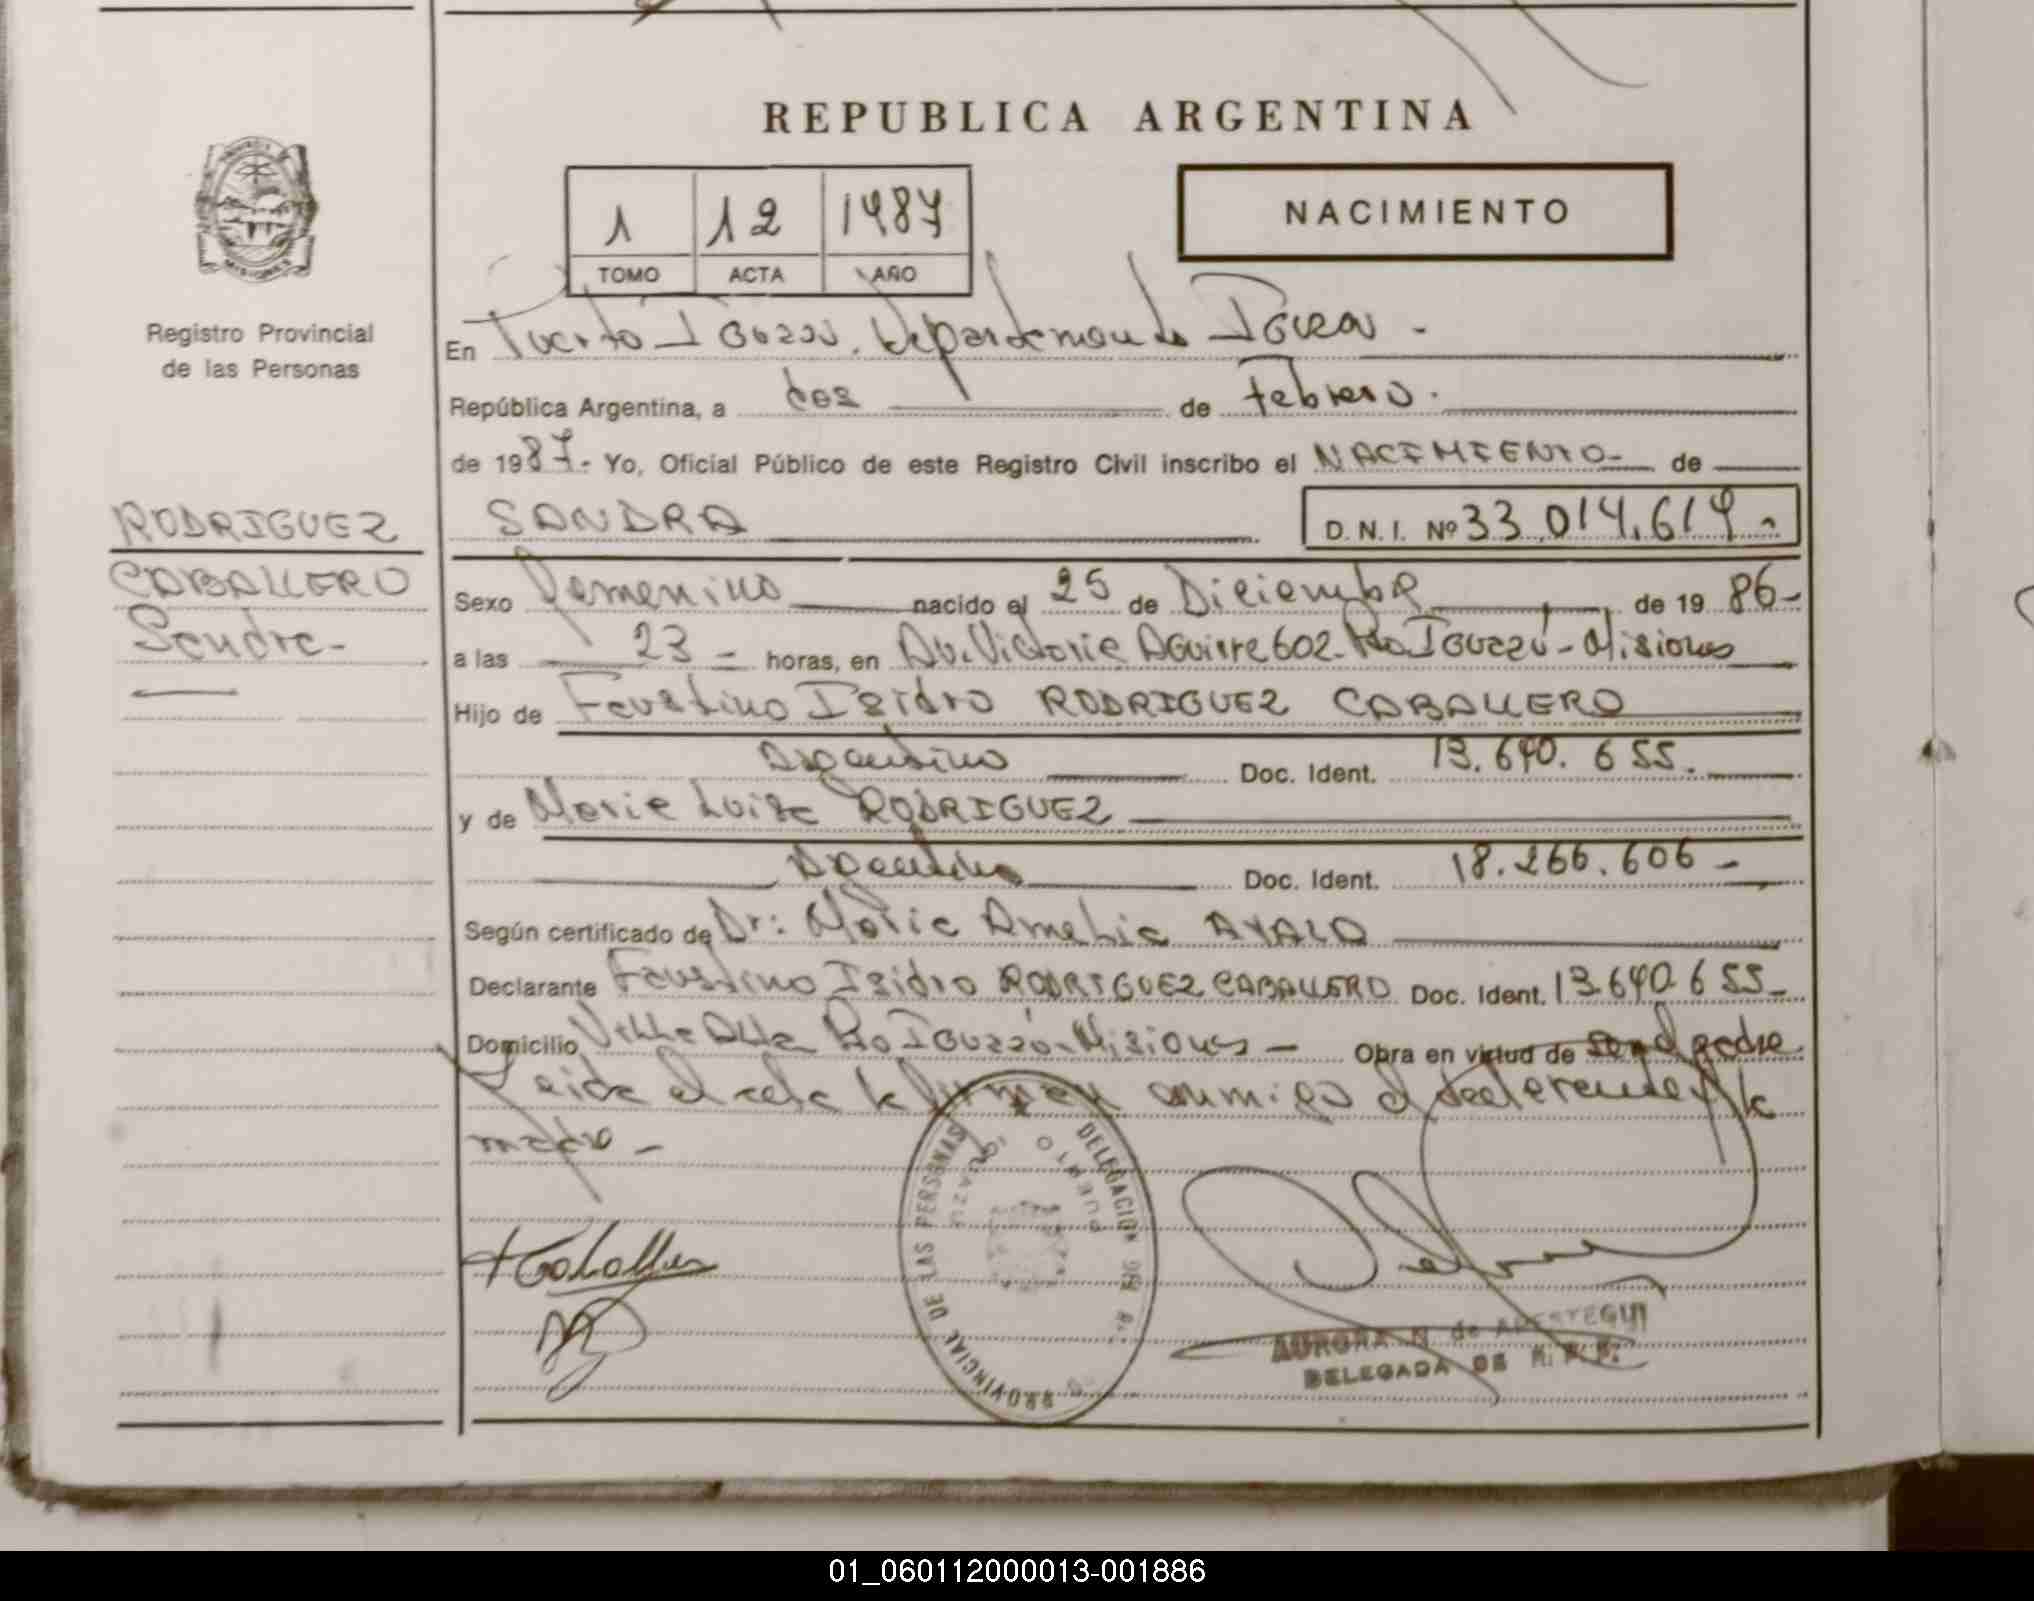 REPUBLICA ARGENTINA
1 12 1987
TOMO ACTA AÑO
NACIMIENTO
Registro Provincial
de las Personas
En Puerto Iguazú, departamento Iguazú -
República Argentina, a dos de Febrero.
de 1987.- Yo, Oficial Público de este Registro Civil inscribo el NACIMIENTO de
SANDRA D. N. I. Nº 33.014.619.-
RODRIGUEZ
CABALLERO
Sandra-
Sexo femenino nacido el 25 de Diciembre de 1986-
a las 23 - horas, en Av. Victoria Aguirre 602. Pto Iguazú - Misiones
Hijo de Faustino Isidro RODRIGUEZ CABALLERO
Argentino Doc. Ident. 13.640.655.
y de Maria Luisa RODRIGUEZ
Argentina Doc. Ident. 18.266.606 -
Según certificado de Dr: Maria Amelia AYALA
Declarante Faustino Isidro RODRIGUEZ CABALLERO Doc. Ident. 13.640.655-
Domicilio Villa Alta Pto Iguazú-Misiones - Obra en virtud de ser el padre.
Leida el acta la firman conmigo el declarante y la
madre -
DELEGACION DEL
PROVINCIAL DE LAS PERSONAS
PUERTO IGUAZU
AURORA N de ARESTEGUI
DELEGADA DE R. P. P.
01_060112000013-001886